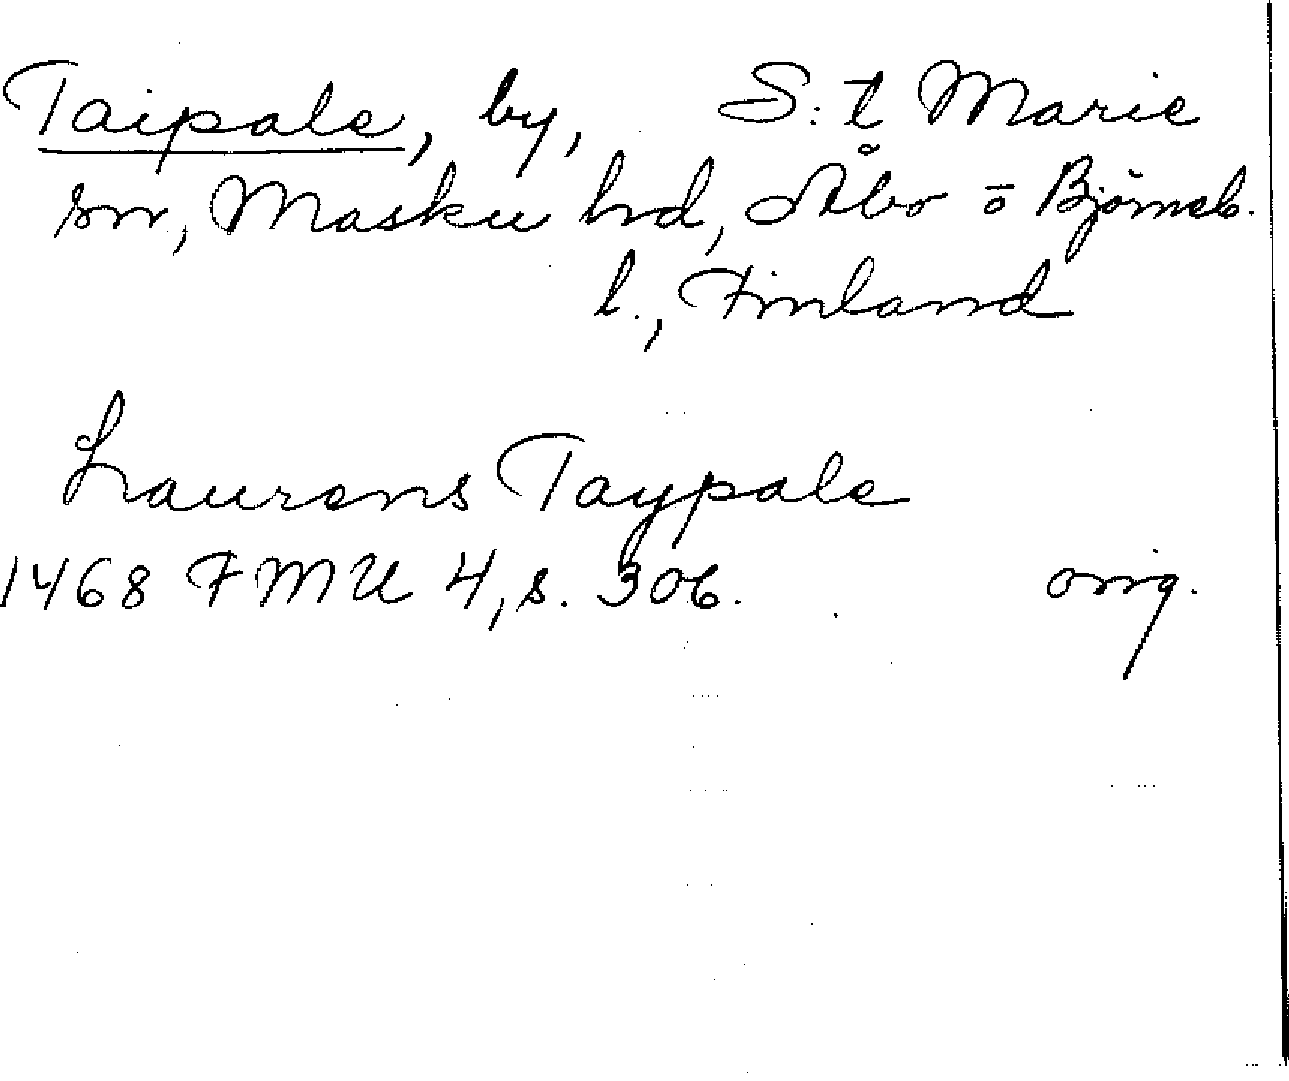 Taipale, by, S:t Marie
sn, Masku hd, Åbo o Björneb.
l., Finland
Laurens Taypale
1468 FMU 4, s. 306. orig.